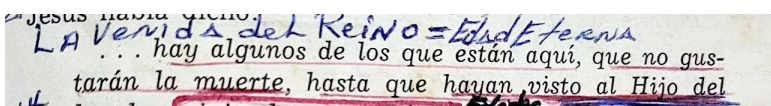 Jesús había dicho:
LA Venida del Reino = Edad Eterna
. . . hay algunos de los que están aquí, que no gus-
tarán la muerte, hasta que hayan visto al Hijo del